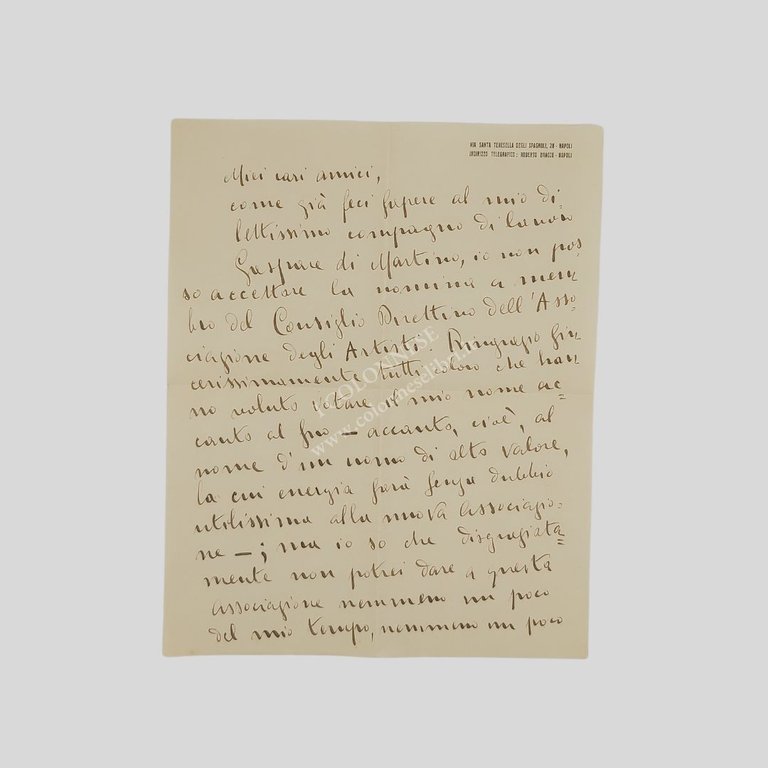 VIA SANTA TERESELLA DEGLI SPAGNOLI, 28 - NAPOLI
INDIRIZZO TELEGRAFICO: ROBERTO BRACCO - NAPOLI
Miei cari amici,
come già feci sapere al mio di=
lettissimo compagno di lavoro
Gaspare di Martino, io non pos=
so accettare la nomina a mem=
bro del Consiglio Direttivo dell'Asso=
ciazione degli Artisti. Ringrazio sin=
cerissimamente tutti coloro che han=
no voluto votare il mio nome ac=
canto al suo — accanto, cioè, al
nome d'un uomo di alto valore,
la cui energia sarà senza dubbio
utilissima alla nuova associazio=
ne —; ma io so che disgraziata=
mente non potrei dare a questa
associazione nemmeno un poco
del mio tempo, nemmeno un poco
COLONNESE
www.colonneselibri.it